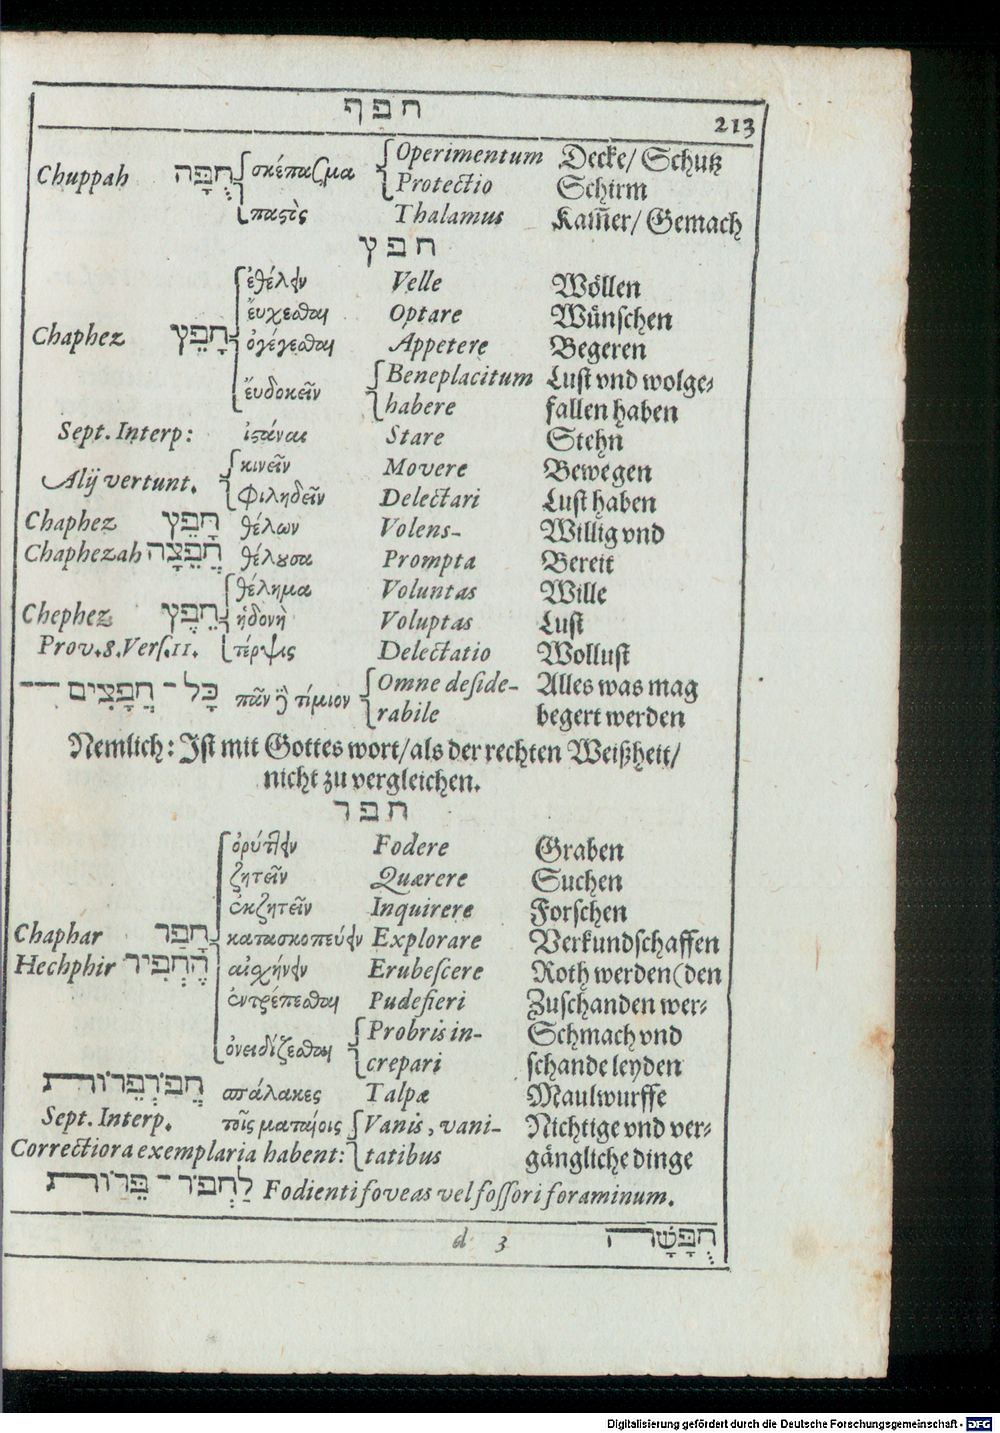 חפף
213
Chuppah חֻפָּה σκέπασμα Operimentum Decke/ Schutz
Protectio Schirm
παςὸς Thalamus Kam̃er/ Gemach
חפץ
ἐθέλειν Velle Wöllen
ἔυχεσθαι Optare Wünschen
Chaphez חָפֵץ ὀρέγεσθαι Appetere Begeren
ἔυδοκεῖν Beneplacitum Lust vnd wolge-
habere fallen haben
Sept. Interp: ἱςάναι Stare Stehn
Alij vertunt. κινεῖν Movere Bewegen
φιληδεῖν Delectari Lust haben
Chaphez חָפֵץ θέλων Volens- Willig vnd
Chaphezah חֲפֵצָה θέλουσα Prompta Bereit
θέλημα Voluntas Wille
Chephez חֵפֶץ ἡδονὴ Voluptas Lust
Prov. 8. Vers. 11. τέρψις Delectatio Wollust
כָּל־חֲפָצִים πᾶν τίμιον Omne deside- Alles was mag
rabile begert werden
Nemlich: Ist mit Gottes wort/ als der rechten Weißheit/
nicht zu vergleichen.
חפר
ὀρύττειν Fodere Graben
ζητεῖν Quærere Suchen
ἐκζητεῖν Inquirere Forschen
Chaphar חָפַר κατασκοπεύειν Explorare Verkundschaffen
Hechphir הֶחְפִּיר αἰσχήνειν Erubescere Roth werden (den
ἐντρέπεσθαι Pudefieri Zuschanden wer-
ὀνειδίζεσθαι Probris in- Schmach vnd
crepari schande leyden
חֲפֹרְפֵּרוֹת σπάλακες Talpæ Maulwurffe
Sept. Interp. τοῖς ματαίοις Vanis, vani- Nichtige vnd ver-
Correctiora exemplaria habent: tatibus gängliche dinge
לַחְפֹּר־פֵּרוֹת Fodienti foveas vel fossori foraminum.
d 3 חֻפָּשָׁה
Digitalisierung gefördert durch die Deutsche Forschungsgemeinschaft - DFG